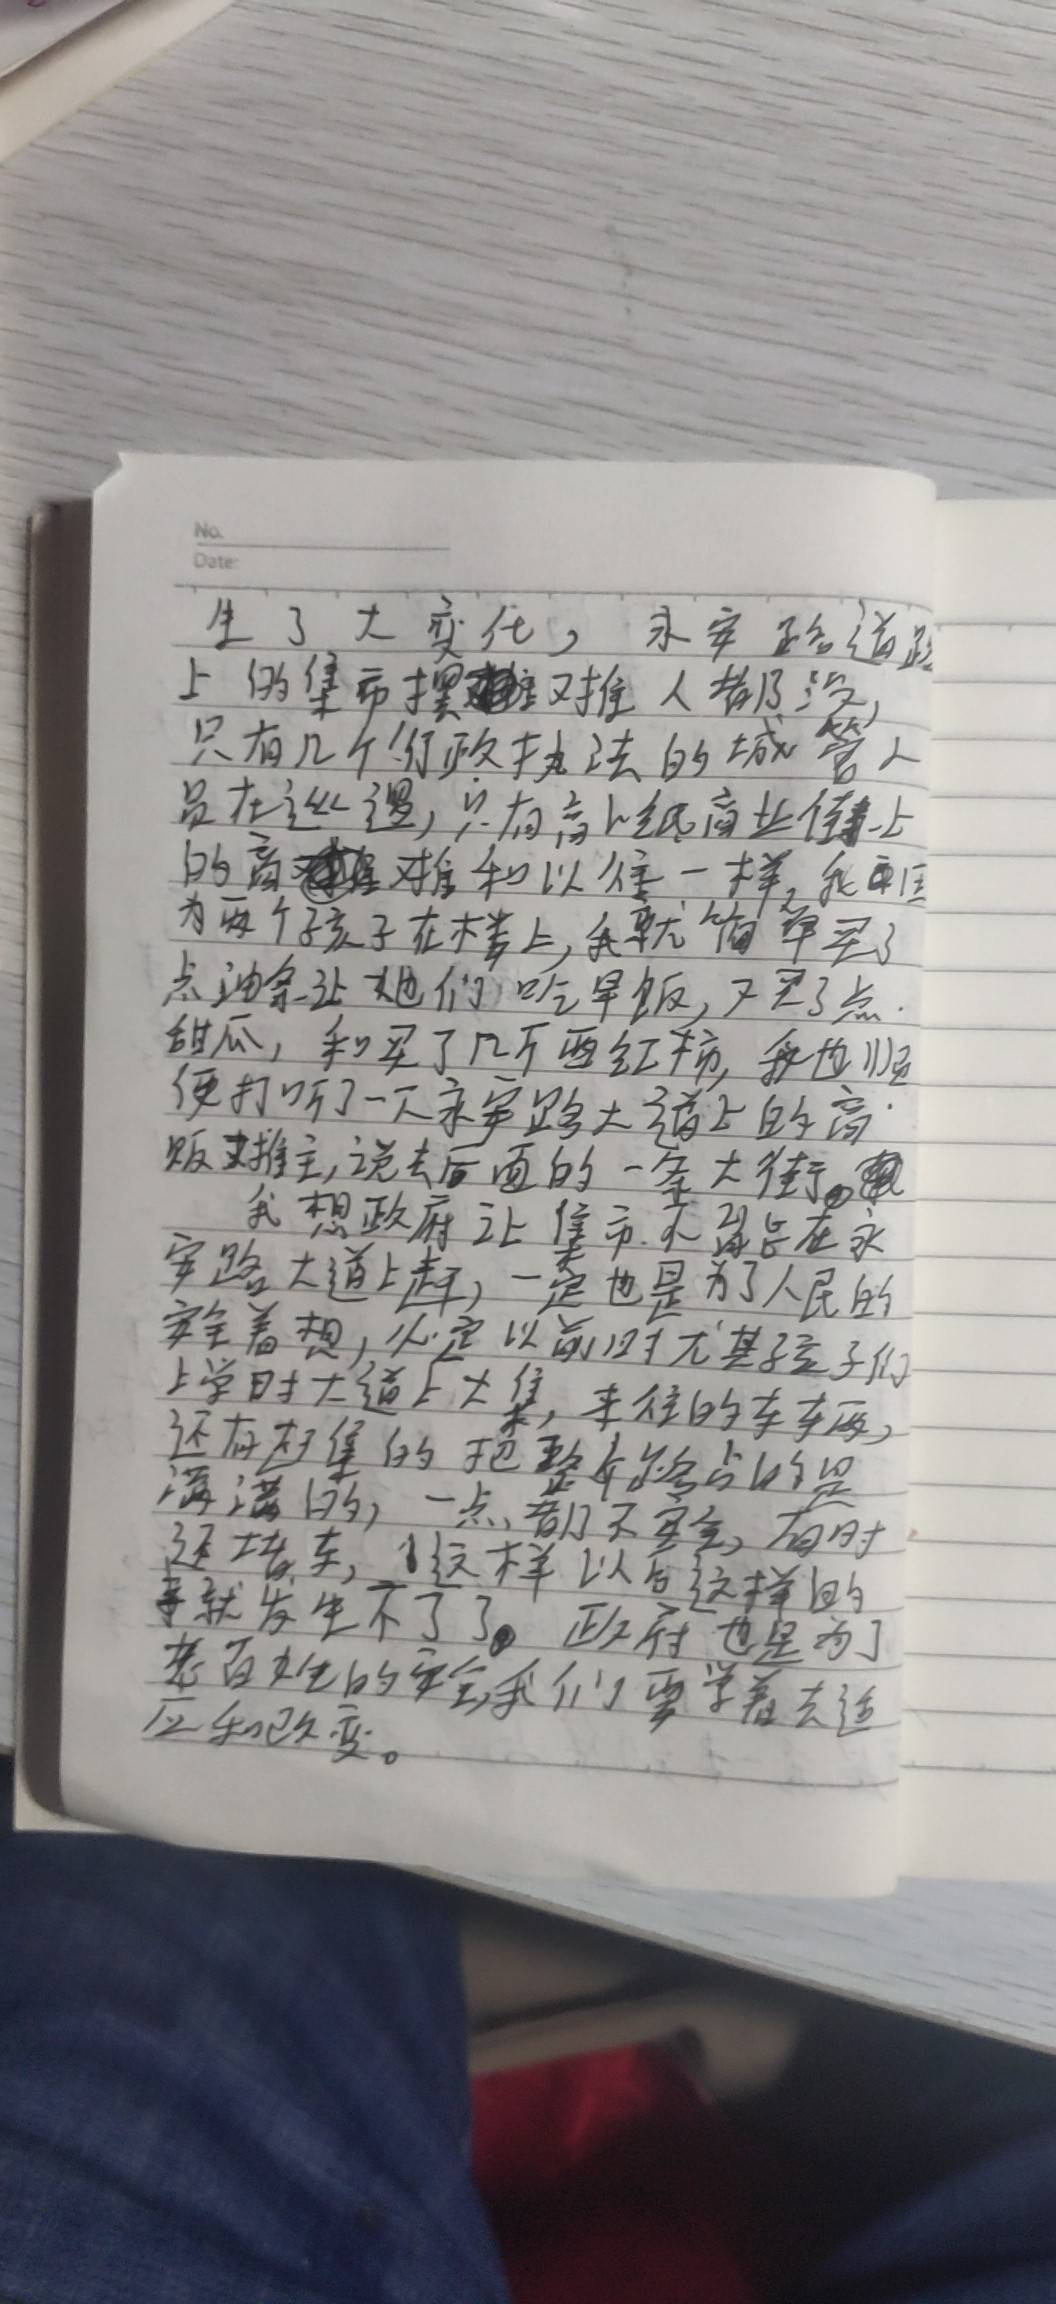 No.
Date:
生了大变化，永安路道路
上的集市摆摊人都没，
只有几个行政执法的城管人
员在巡逻，只有商业街上
的商摊和以往一样，我因
为两个孩子在楼上，我就简单买了
点油条让她们吃早饭，又买了点
甜瓜，和买了几斤西红柿，我也顺
便打听了一下永安路大道上的商
贩摊主，说去后面的一条大街。
我想政府让集市不能在永
安路大道上赶，一定也是为了人民的
安全着想，必定以前时尤其孩子们
上学时大道上大集，来往的车车辆，
还有赶集的把整个路占的是
满满的，一点都不安全，有时
还堵车，这样以后这样的
事就发生不了了。政府也是为了
老百姓的安全，我们要学着去适
应和改变。